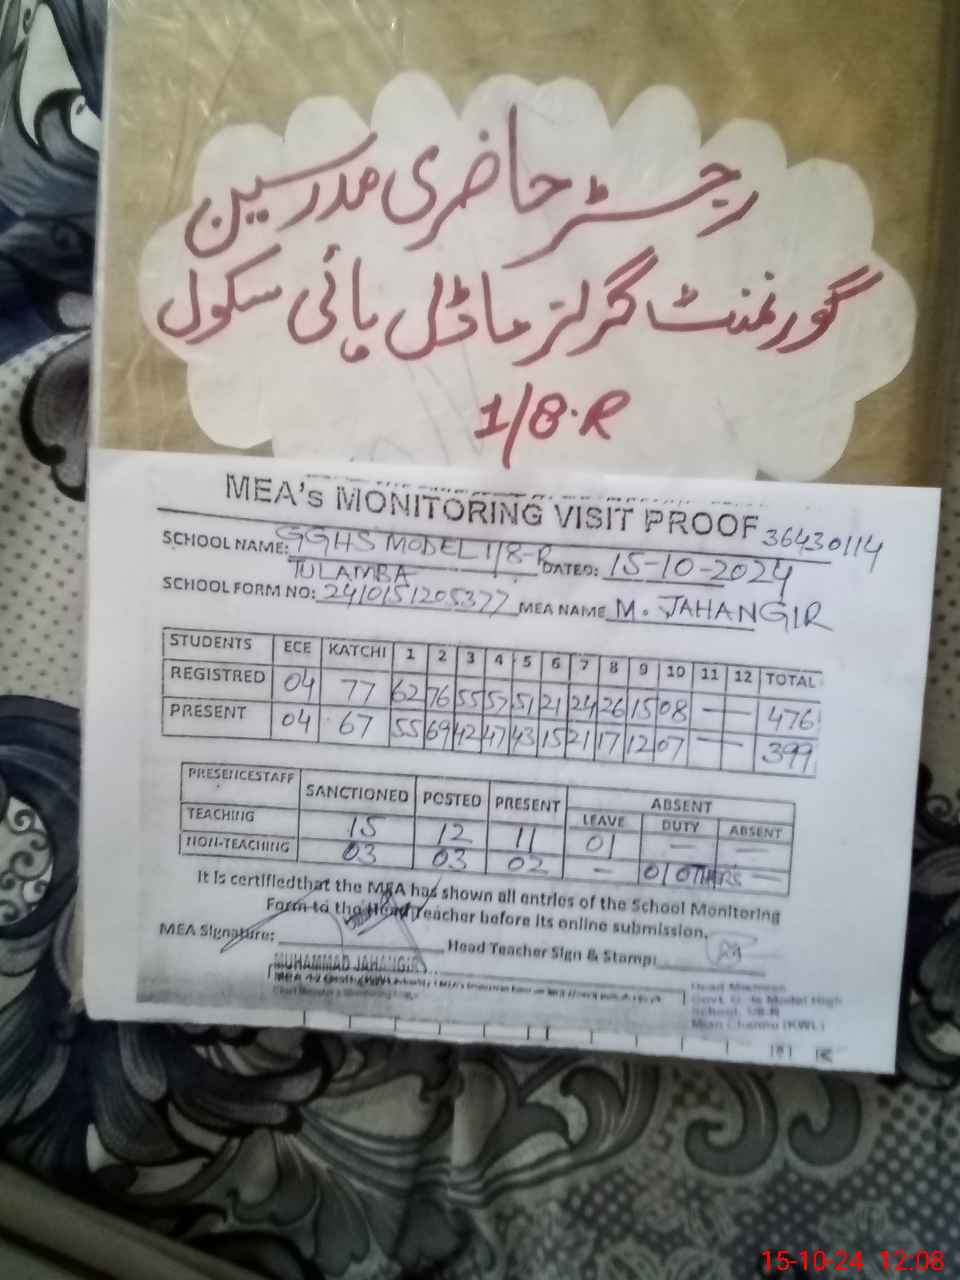 رجسٹر حاضری مدرسین
گورنمنٹ گرلز ماڈل ہائی سکول
1/8.R
MEA's MONITORING VISIT PROOF 36430114
SCHOOL NAME: GGHS MODEL 1/8-R DATED: 15-10-2024
TULAMBA
SCHOOL FORM NO: 2410151205377 MEA NAME M. JAHANGIR
STUDENTS ECE KATCHI 1 2 3 4 5 6 7 8 9 10 11 12 TOTAL
REGISTRED 04 77 62 76 55 57 51 21 24 26 15 08 — — 476
PRESENT 04 67 55 69 42 47 43 15 21 17 12 07 — — 399
PRESENCESTAFF SANCTIONED POSTED PRESENT ABSENT
LEAVE DUTY ABSENT
TEACHING 15 12 11 01 — —
NON-TEACHING 03 03 02 — 01 OTHERS —
It is certifiedthat the MEA has shown all entries of the School Monitoring
Form to the Head Teacher before its online submission.
MEA Signature: Head Teacher Sign & Stamp:
MUHAMMAD JAHANGIR
Head Mistress
Govt. Girls Model High
School, 1/8-R
Mian Channu (KWL)
15-10-24 12:08